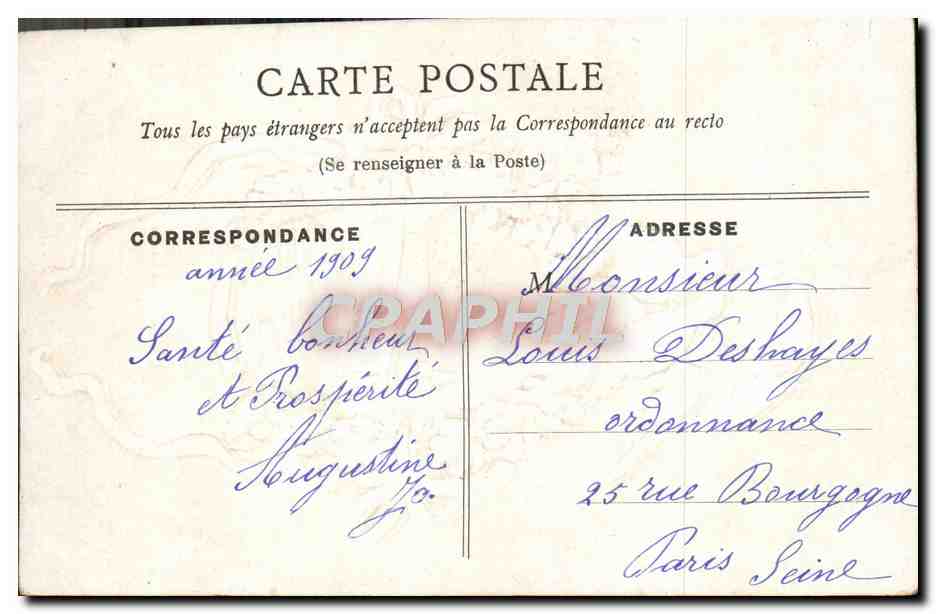 CARTE POSTALE
Tous les pays étrangers n'acceptent pas la Correspondance au recto
(Se renseigner à la Poste)
CORRESPONDANCE
année 1909
Santé bonheur
et Prospérité
Augustine
ADRESSE
M Monsieur
Louis Deshayes
ordonnance
25 rue Bourgogne
Paris Seine
CPAPHIL